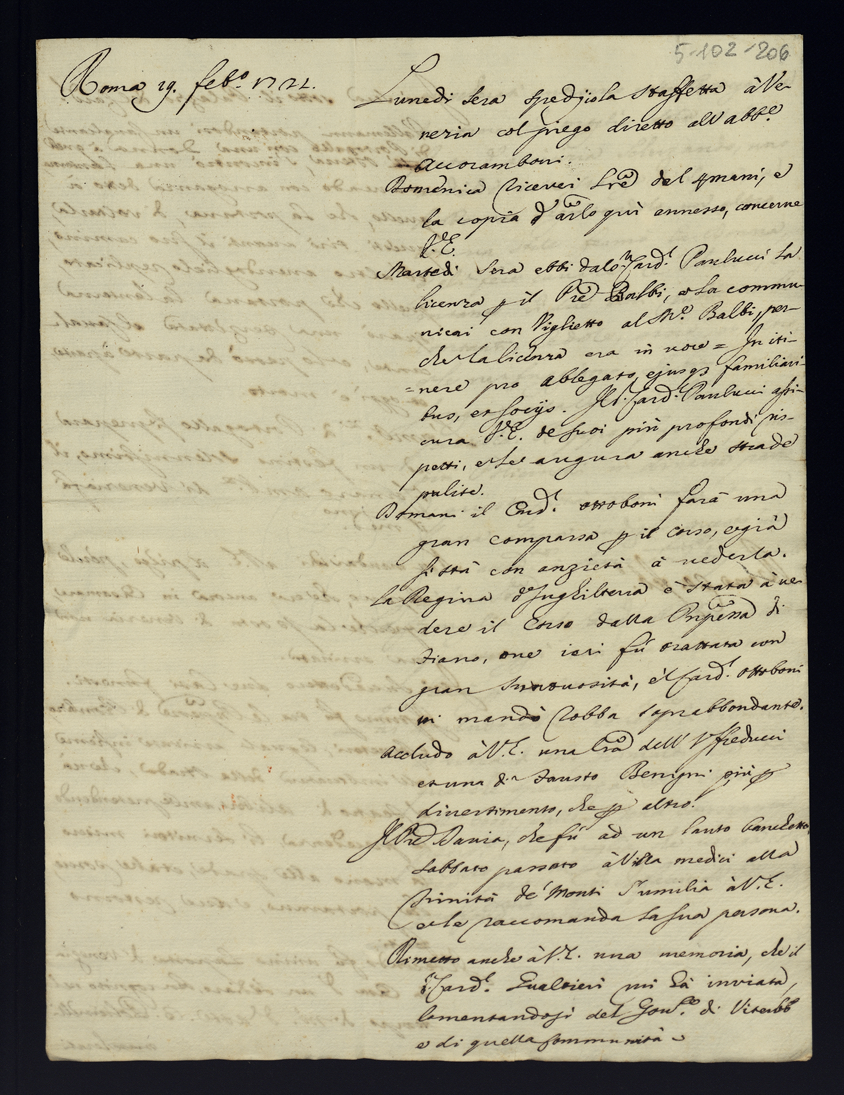 5-102-206
Roma 19. feb.o 1721.
Lunedi sera spedij la staffetta à Ve-
nezia col piego diretto all'abb.e
Accoramboni.
Domenica ricevei lre del qmani, e
la copia d' arlo quì annesso, concerne
V.E.
Martedi sera ebbi dalo Card.l Paulucci la
licenza p il Pre Balbi, e la commu-
nicai con Viglietto al Balbi, per-
che la licenza era in voce = In iti-
= nere pro ablegato, ejusq familiari-
bus, et socijs. Il Card.l Paulucci assi-
cura V.E. de suoi più profondi ris-
petti, e le augura anche strade
pulite.
Domani il Card.l Ottoboni farà una
gran comparsa p il corso, e già
si stà con anzietà à vederla.
La Regina d'Inghilterra è stata à ve-
dere il Corso dalla Pnpessa di
Fiano, ove ieri fù trattata con
gran sontuosità, e'l Card.l Ottoboni
vi mandò robba soprabbondante.
Accludo à V.E. una lra dell'Uffreducci
et una di Fausto Benigni più p
divertimento, che p altro.
Il Pre Davia, che fù ad un lauto banchetto
sabbato passato à Villa medici alla
Trinità de' Monti s'umilia à V.E.
e le raccomanda la sua persona.
Rimetto anche à V.E. una memoria, che il
Card.l Gualtieri mi hà inviata,
lamentandosi del Gov.re di Viterbo
e di quella Communità